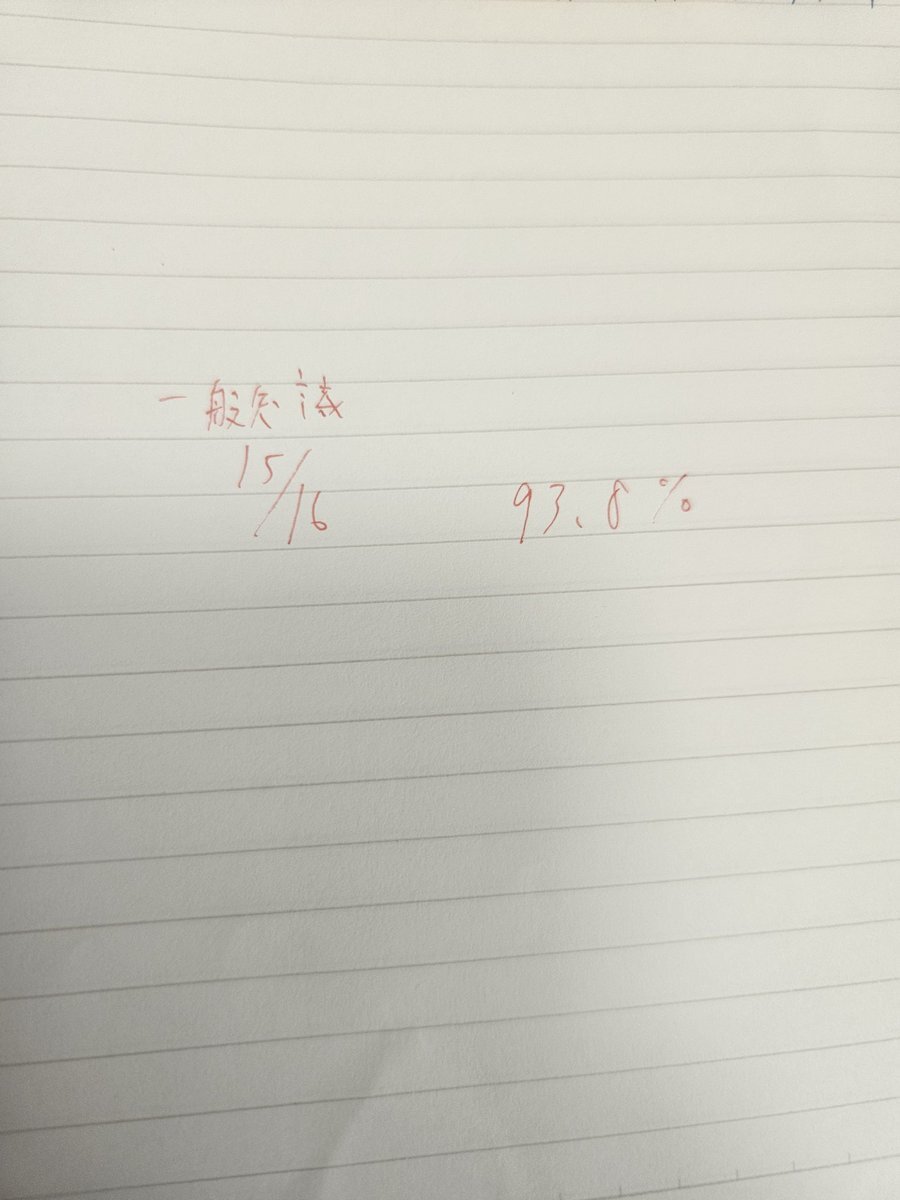 一般知識
15/16 93.8%